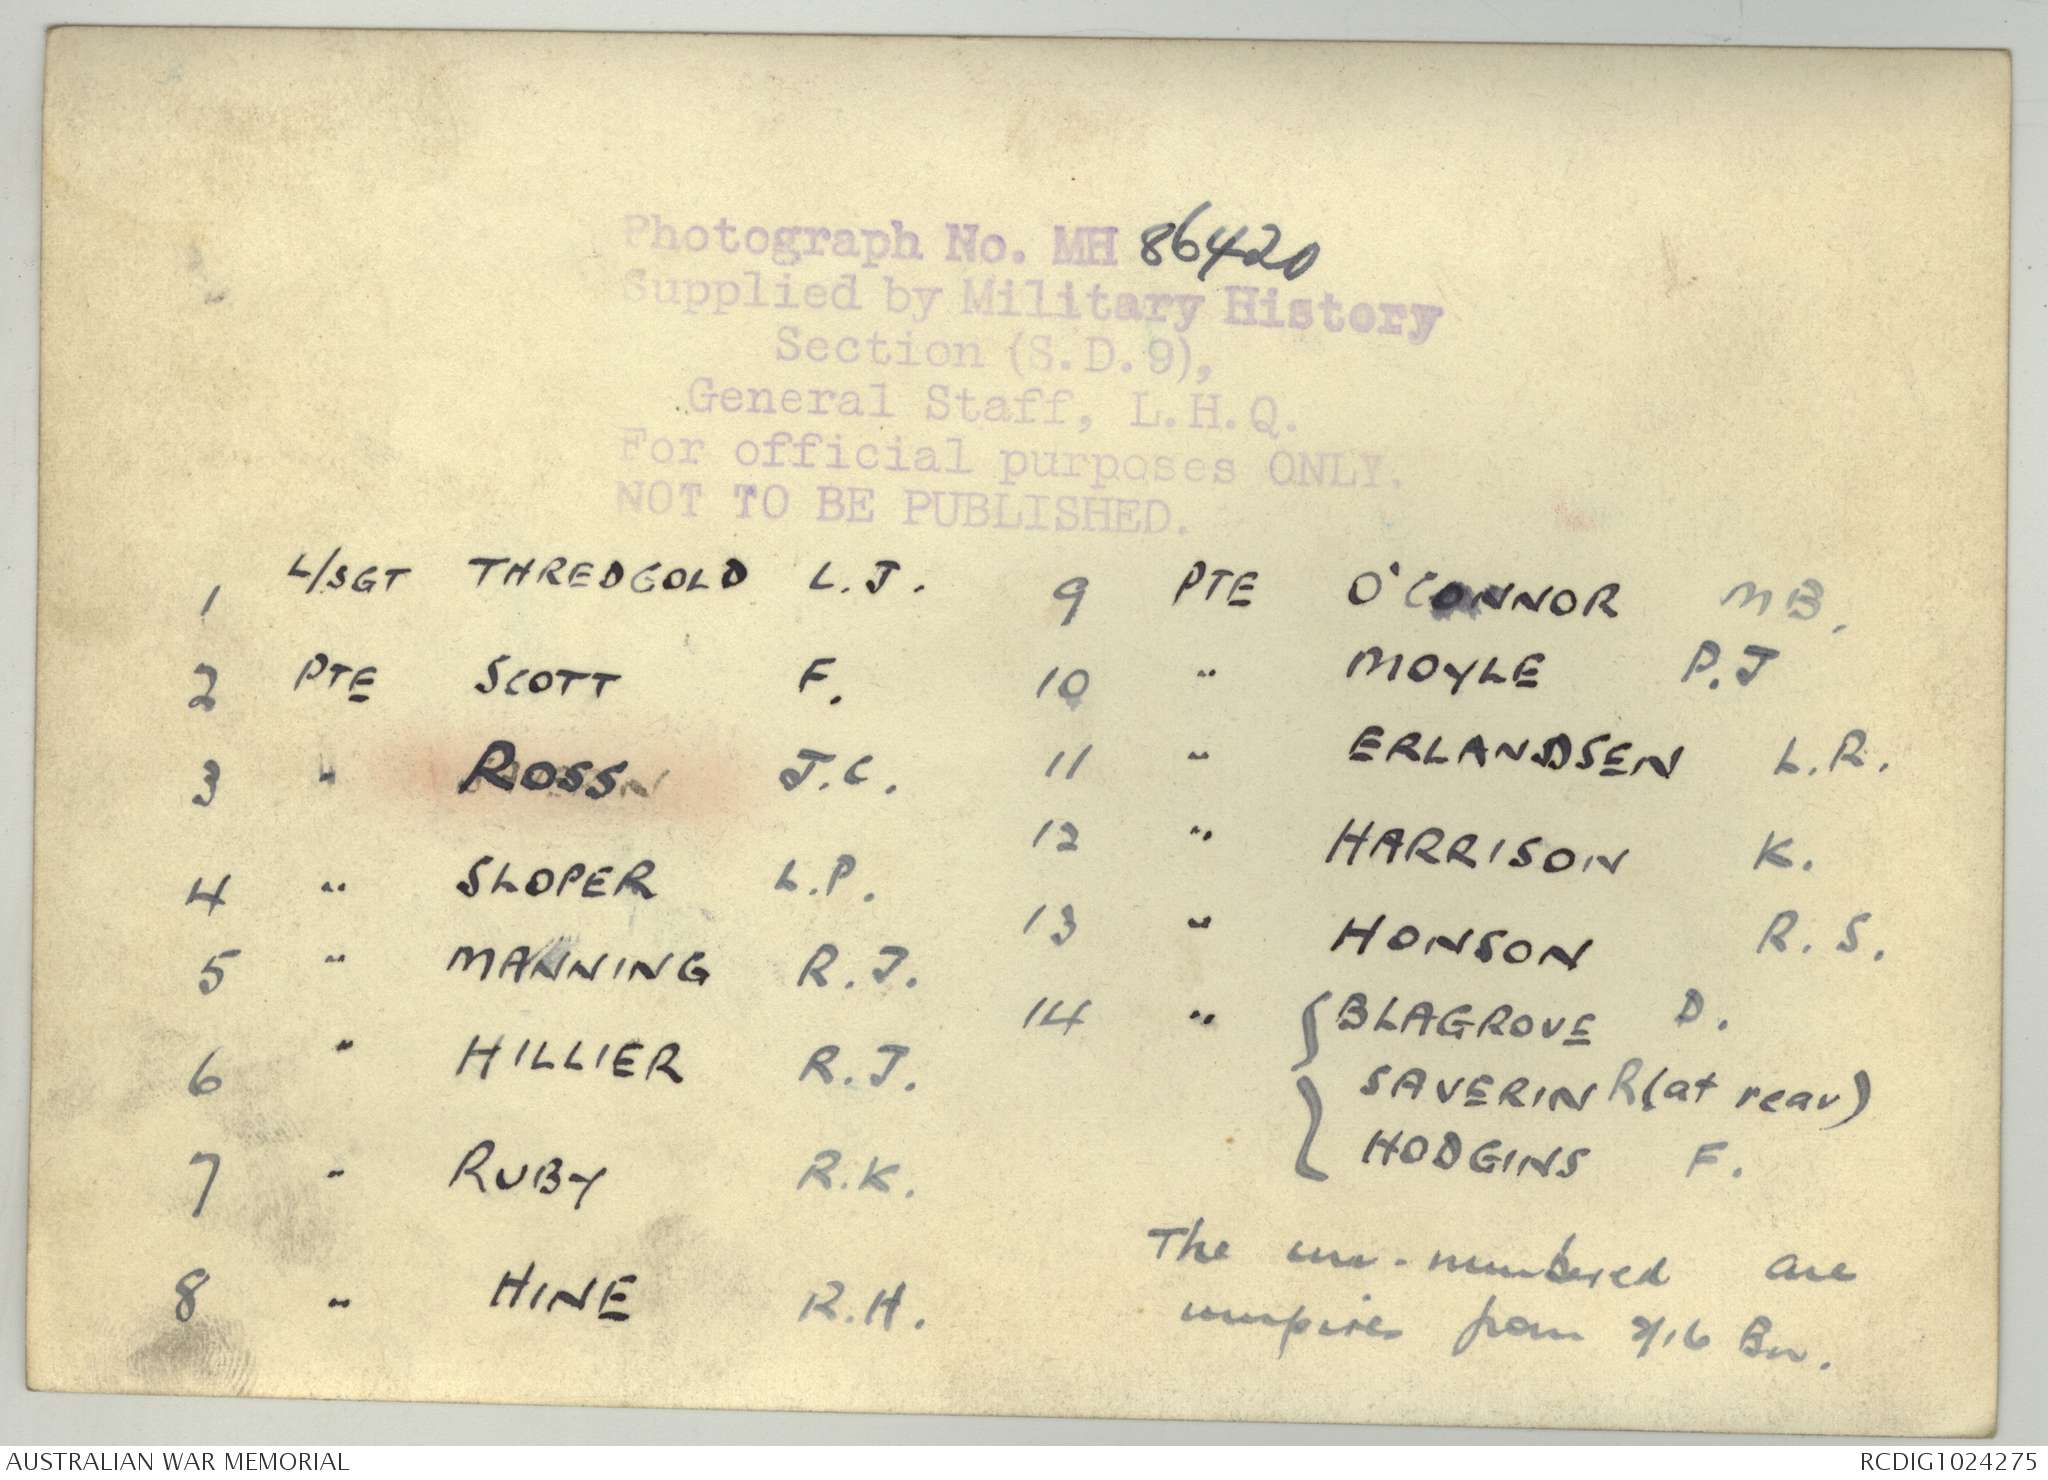 Photograph No. MH 86420
Supplied by Military History
Section (S.D.9),
General Staff, L.H.Q.
For official purposes ONLY.
NOT TO BE PUBLISHED.
1 L/SGT THREDGOLD L.J.
2 PTE SCOTT F.
3 " ROSS J.C.
4 " SLOPER L.P.
5 " MANNING R.J.
6 " HILLIER R.J.
7 " RUBY R.K.
8 " HINE R.H.
9 PTE O'CONNOR MB.
10 " MOYLE P.J
11 " ERLANDSEN L.R.
12 " HARRISON K.
13 " HONSON R.S.
14 " { BLAGROVE D.
SAVERIN R (at rear)
HODGINS F.
The un-numbered are
umpires from 2/16 Bn.
AUSTRALIAN WAR MEMORIAL
RCDIG1024275